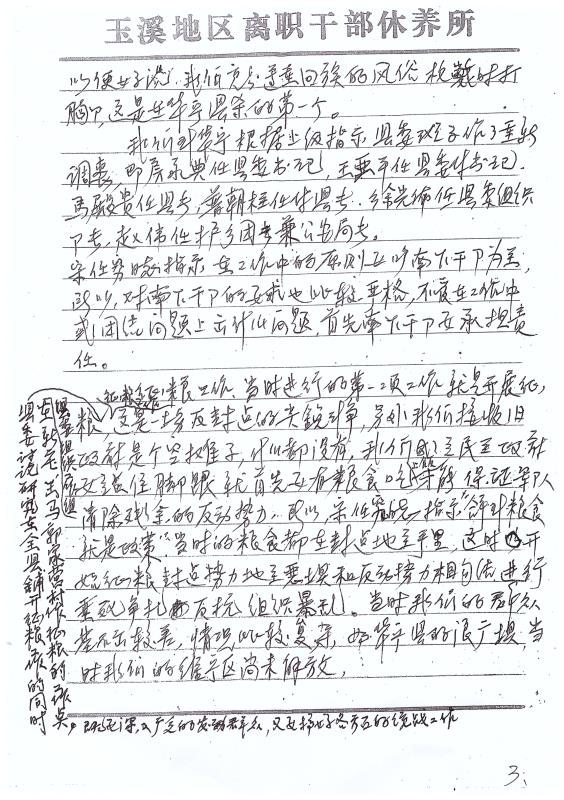 玉溪地区离职干部休养所
以便好说，我们充分遵重回族的风俗
胸，这是生华宁县杀的第一个。
我们到华宁根据上级指示县委班子作了重新
调整，即房永典任县委书记，王亚平任县委付书记，
马毅贵任县长，普朝柱任付县长，徐光佈任县委组织
卩长，赵伟任护乡团长兼公安局长。
宋任穷政委指示在工作中的原则上以南下干卩为主，
所以，对南下干卩的要求也比较严格，不管在工作中
或团结问题上出什么问题，首先南下干卩要承担责
任。
征粮工作，当时进行的第一项工作就是开展征
粮，这是一场反封点的尖锐斗争，另外我们接收旧
政府是个空摊子，什么都没有，我们民主政府
要站住脚跟就首先要有粮食吃，才能保证军队
清除残余的反动势力。所以宋任穷指示"得到粮食
就是政策"当时的粮食都在封点地主手里，这时开
始征粮封点势力地主恶坝和反动势力相勾结进行
垂死争扎反抗组织暴乱。当时我们的群众
基础较差，情况比较复杂，如华宁县的浪广坝，当
时我们的维宁区尚未解放，
既要深入广泛的发动群众，又要搞好各方面的统战工作
县委组织卩组
出马郭家营村作征粮的示点
县委讨论研究在全县铺开征粮工作的同时
3、